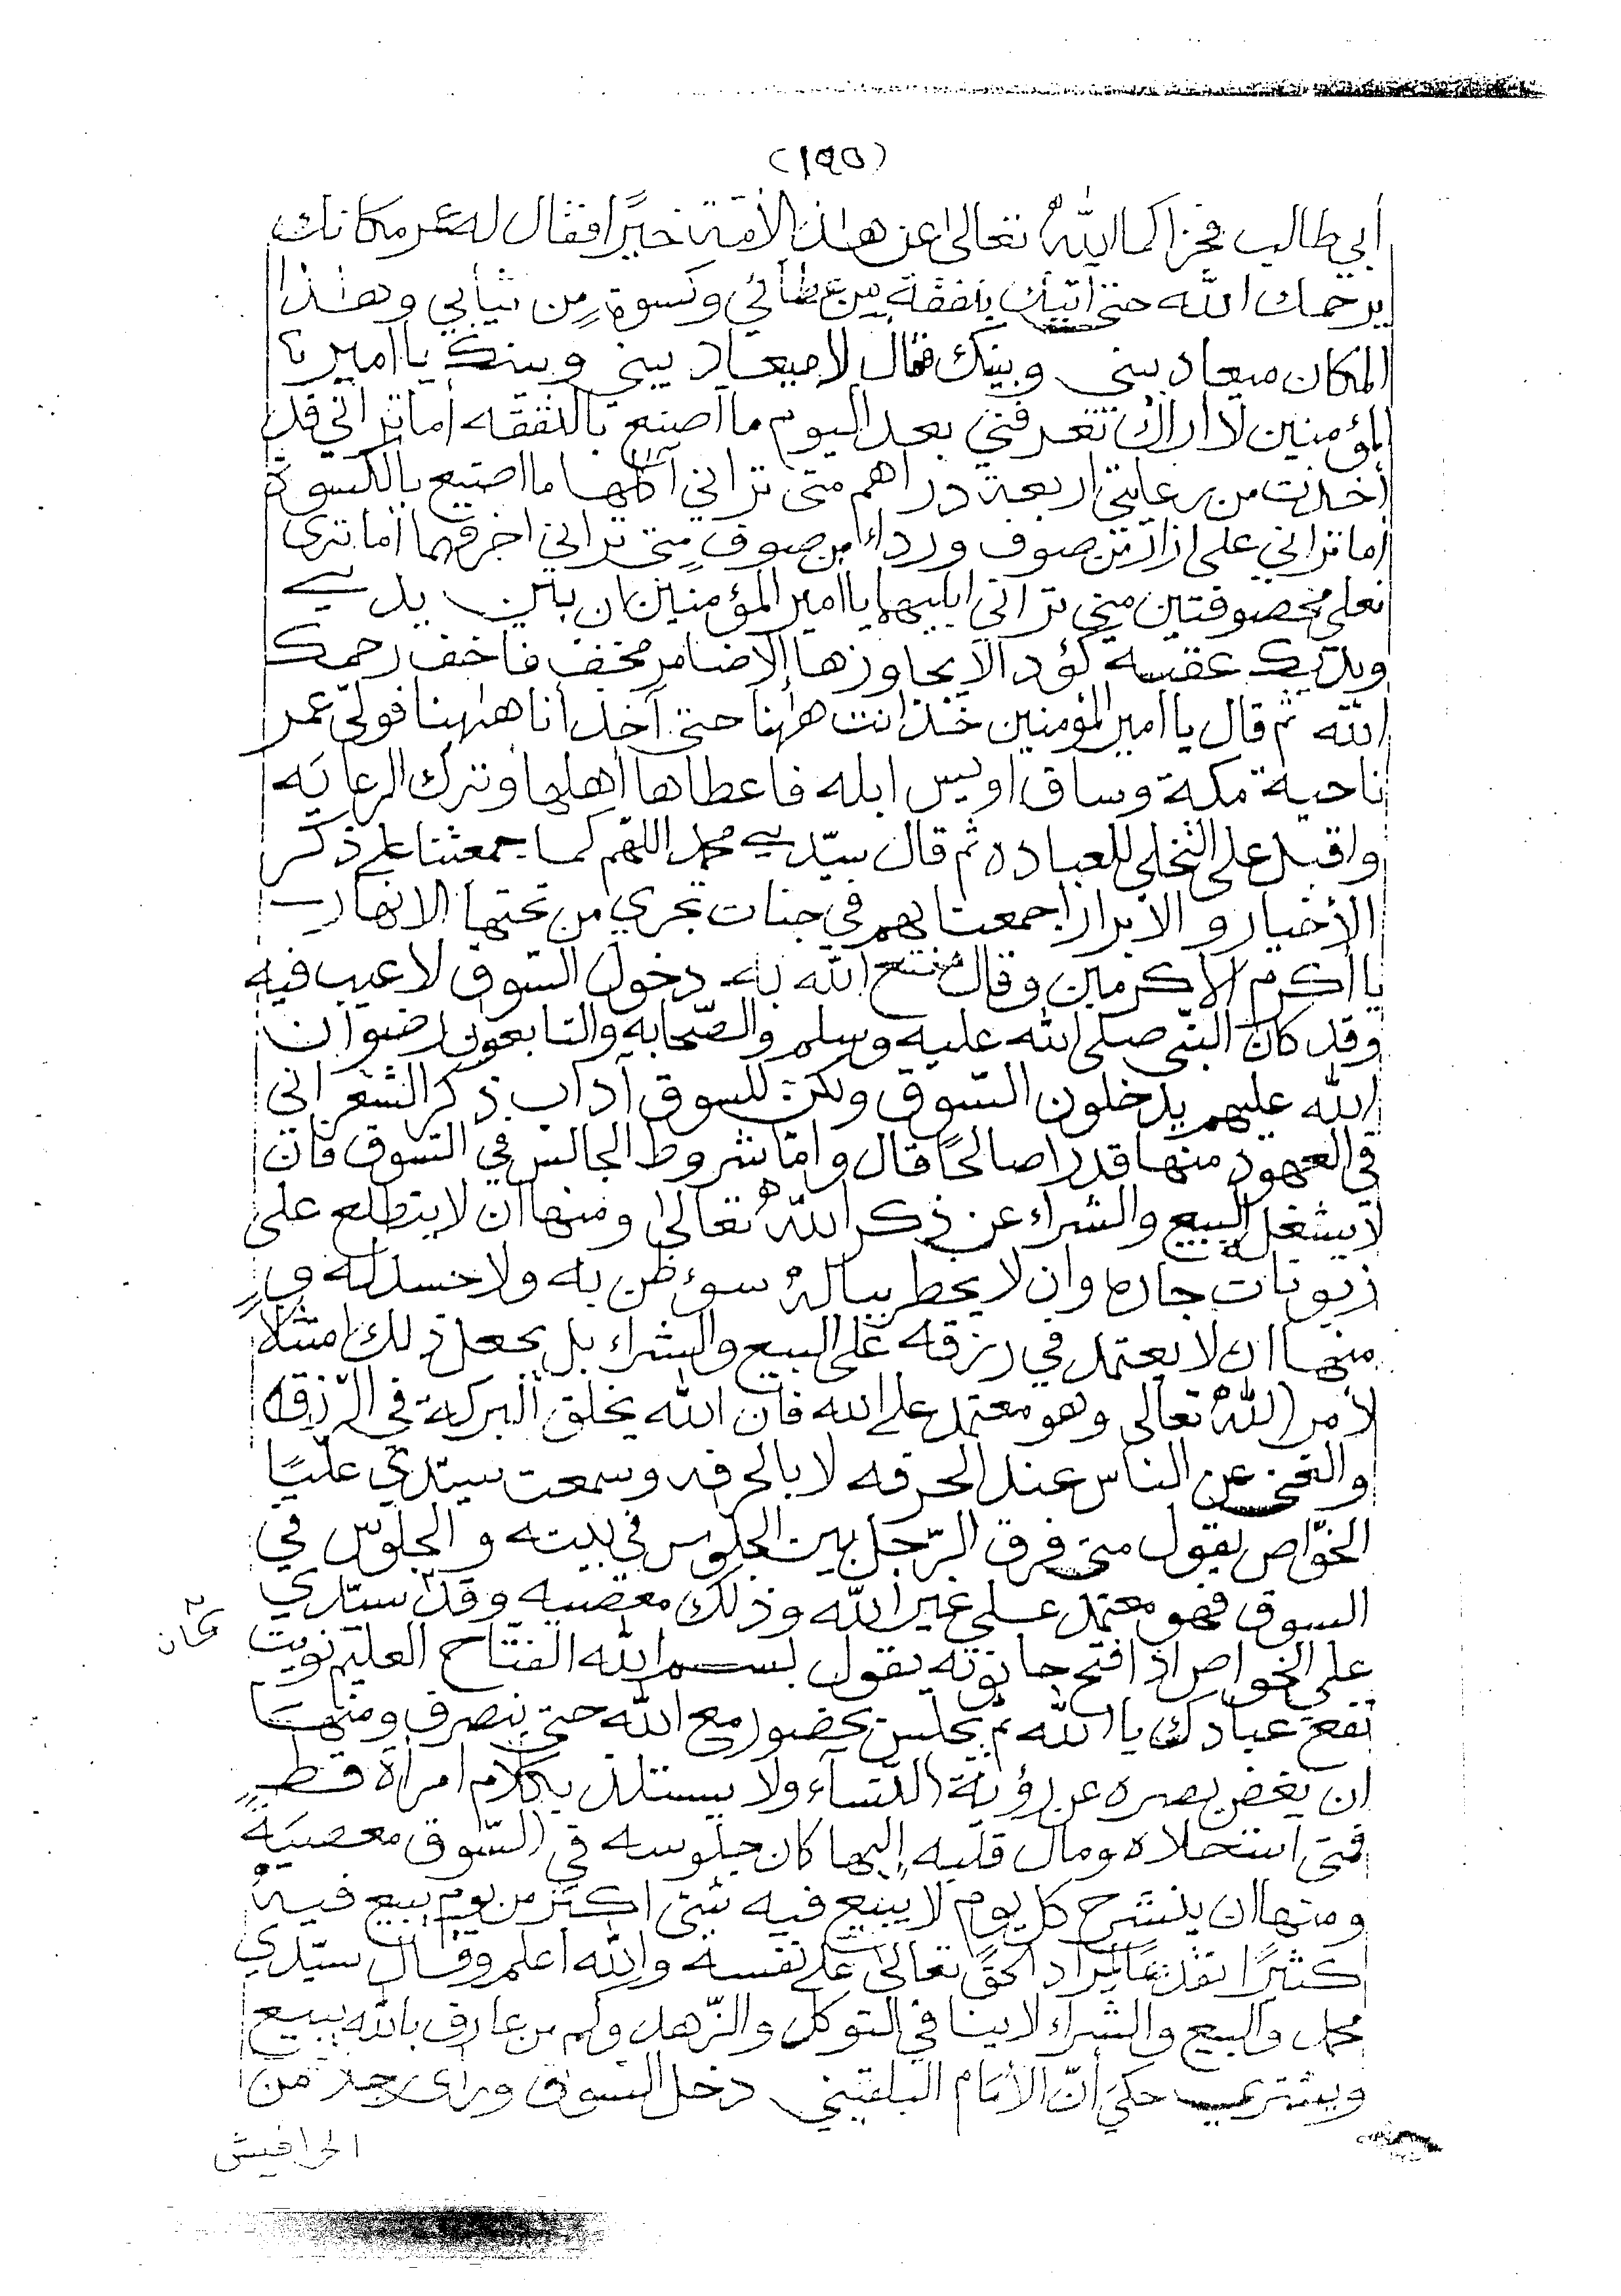 (١٩٥)
أبي طالب فجزاكما اللهُ تعالى عن هذه الأمة خيرًا فقال له عمر مكانك
يرحمك الله حتى آتيك بنفقة من عطائي وكسوةٍ مِن ثيابي وهذا
المكان ميعاد بيني وبينك فقال لا ميعاد بيني وبينك يا امير
المؤمنين لا اراك تعرفني بعد اليوم ما اصنع بالنفقه أما تراني قد
أخذت من رعايتي اربعة دراهم متى تراني آكلها ما اصنع بالكسوة
أما تراني على ازار من صوف ورداء من صوفٍ متى تراني اخرقهما أما ترى
نعلي مخصوفتين متى تراني ابليهما يا امير المؤمنين ان بين يدي
ويديك عقبة كؤد الا يجاوزها إلا ضامر مخف فاخف رحمك
الله ثم قال يا امير المؤمنين خذ انت ههنا حتى آخذ أنا ههنا فولّى عمر
ناحية مكة وساق اويس ابله فاعطاها أهلها وترك الرعايَه
واقبل على التخلي للعباده ثم قال سيّدي محمد اللهم كما جمعتنا على ذكر
الأخيار والابرار اجمعنا بهم في جنات تجري من تحتها الانهار
يا أكرم الاكرمين وقال متع الله به دخول السوق لا عيب فيه
وقد كان النبي صلى الله عليه وسلم والصّحابه والتابعون رضوان
الله عليهم يدخلون السّوق ولكن للسوق آداب ذكر الشعراني
في العهود منها قدرا صالحًا قال وامّا شروط الجالس في السّوق فان
لا يشغله البيع والشراء عن ذكر اللهُ تعالى ومنها ان لا يتطلع على
زبونات جاره وان لا يخطر ببالهُ سوء ظن به ولا حسد له و
منها ان لا يعتمد في رزقه على البيع والشراء بل يجعل ذلك امتثالا
لأمر اللهُ تعالى وهو معتمد على الله فان الله يخلق البركة في الرّزقه
والغنى عن الناس عند الحرفه لا بالحرفه وسمعت سيّدي عليًا
الخوّاص يقول متى فرق الرّجل بين الجلوس في بيته والجلوس في
السوق فهو معتمد على غير الله وذلك معصيه وقد سيّدي
كان
علي الخواص اذا فتح حانوته يقول بسم الله الفتاح العليم نويت
نفع عبادك يا الله ثم يجلس بحضور مع الله حتى ينصرف ومنها
ان يغض بصره عن رؤية النّساء ولا يستلذ بكلام امرأة قط
فمتى استحلاه ومال قلبه إليها كان جلوسه في السّوق معصيَةً
ومنها ان ينشرح كل يوم لا يبيع فيه شئ اكثر من يوم يبيع فيه
كثيرًا تقديمًا لمراد الحقّ تعالى على نفسه والله اعلم وقال سيّدي
محمد والبيع والشراء لا ينافي التوكل والزّهد وكم من عارف بالله يبيع
ويشتري حكي أنّ الأمام البلقيني دخل السوق ورأى رجلا من
الحرافيش